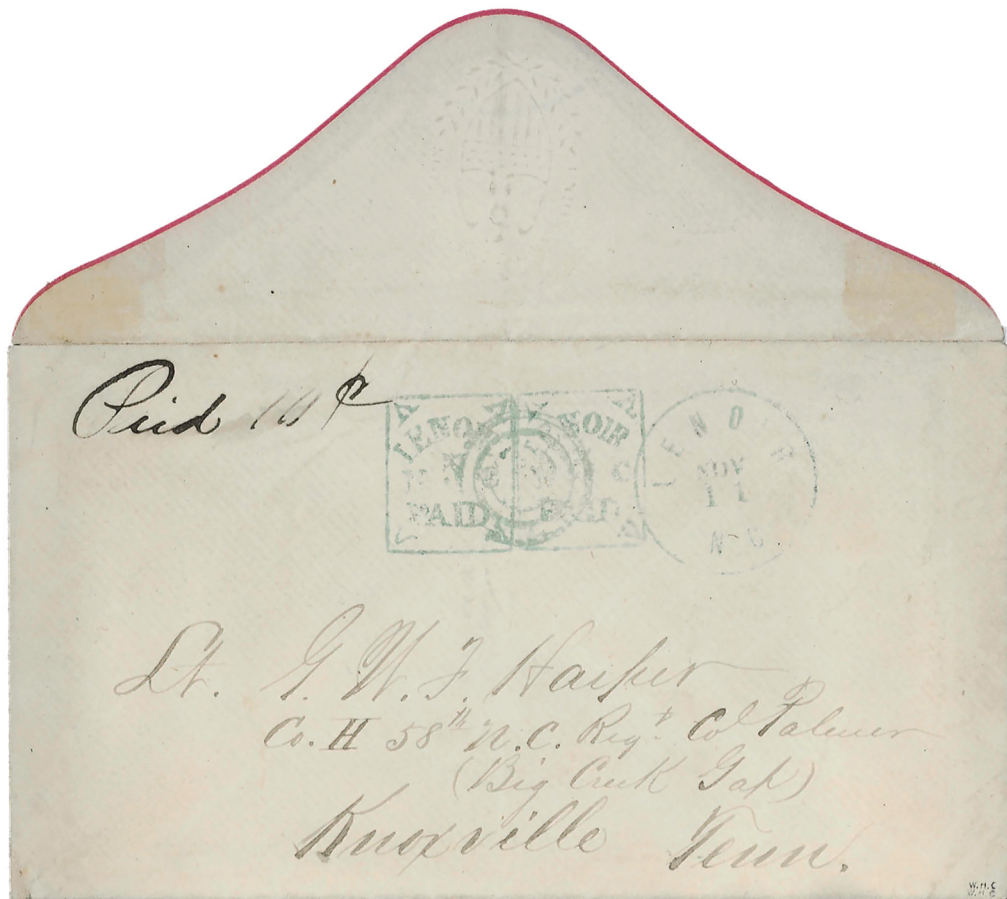 Paid 10¢
LENOIR NOIR
N C
PAID PAID
LENOIR
NOV
11
N.C
Lt. G. W. F. Harper
Co. H 58th N.C. Regt Col Palmer
(Big Creek Gap)
Knoxville Tenn.
W.H.C
W.H.C